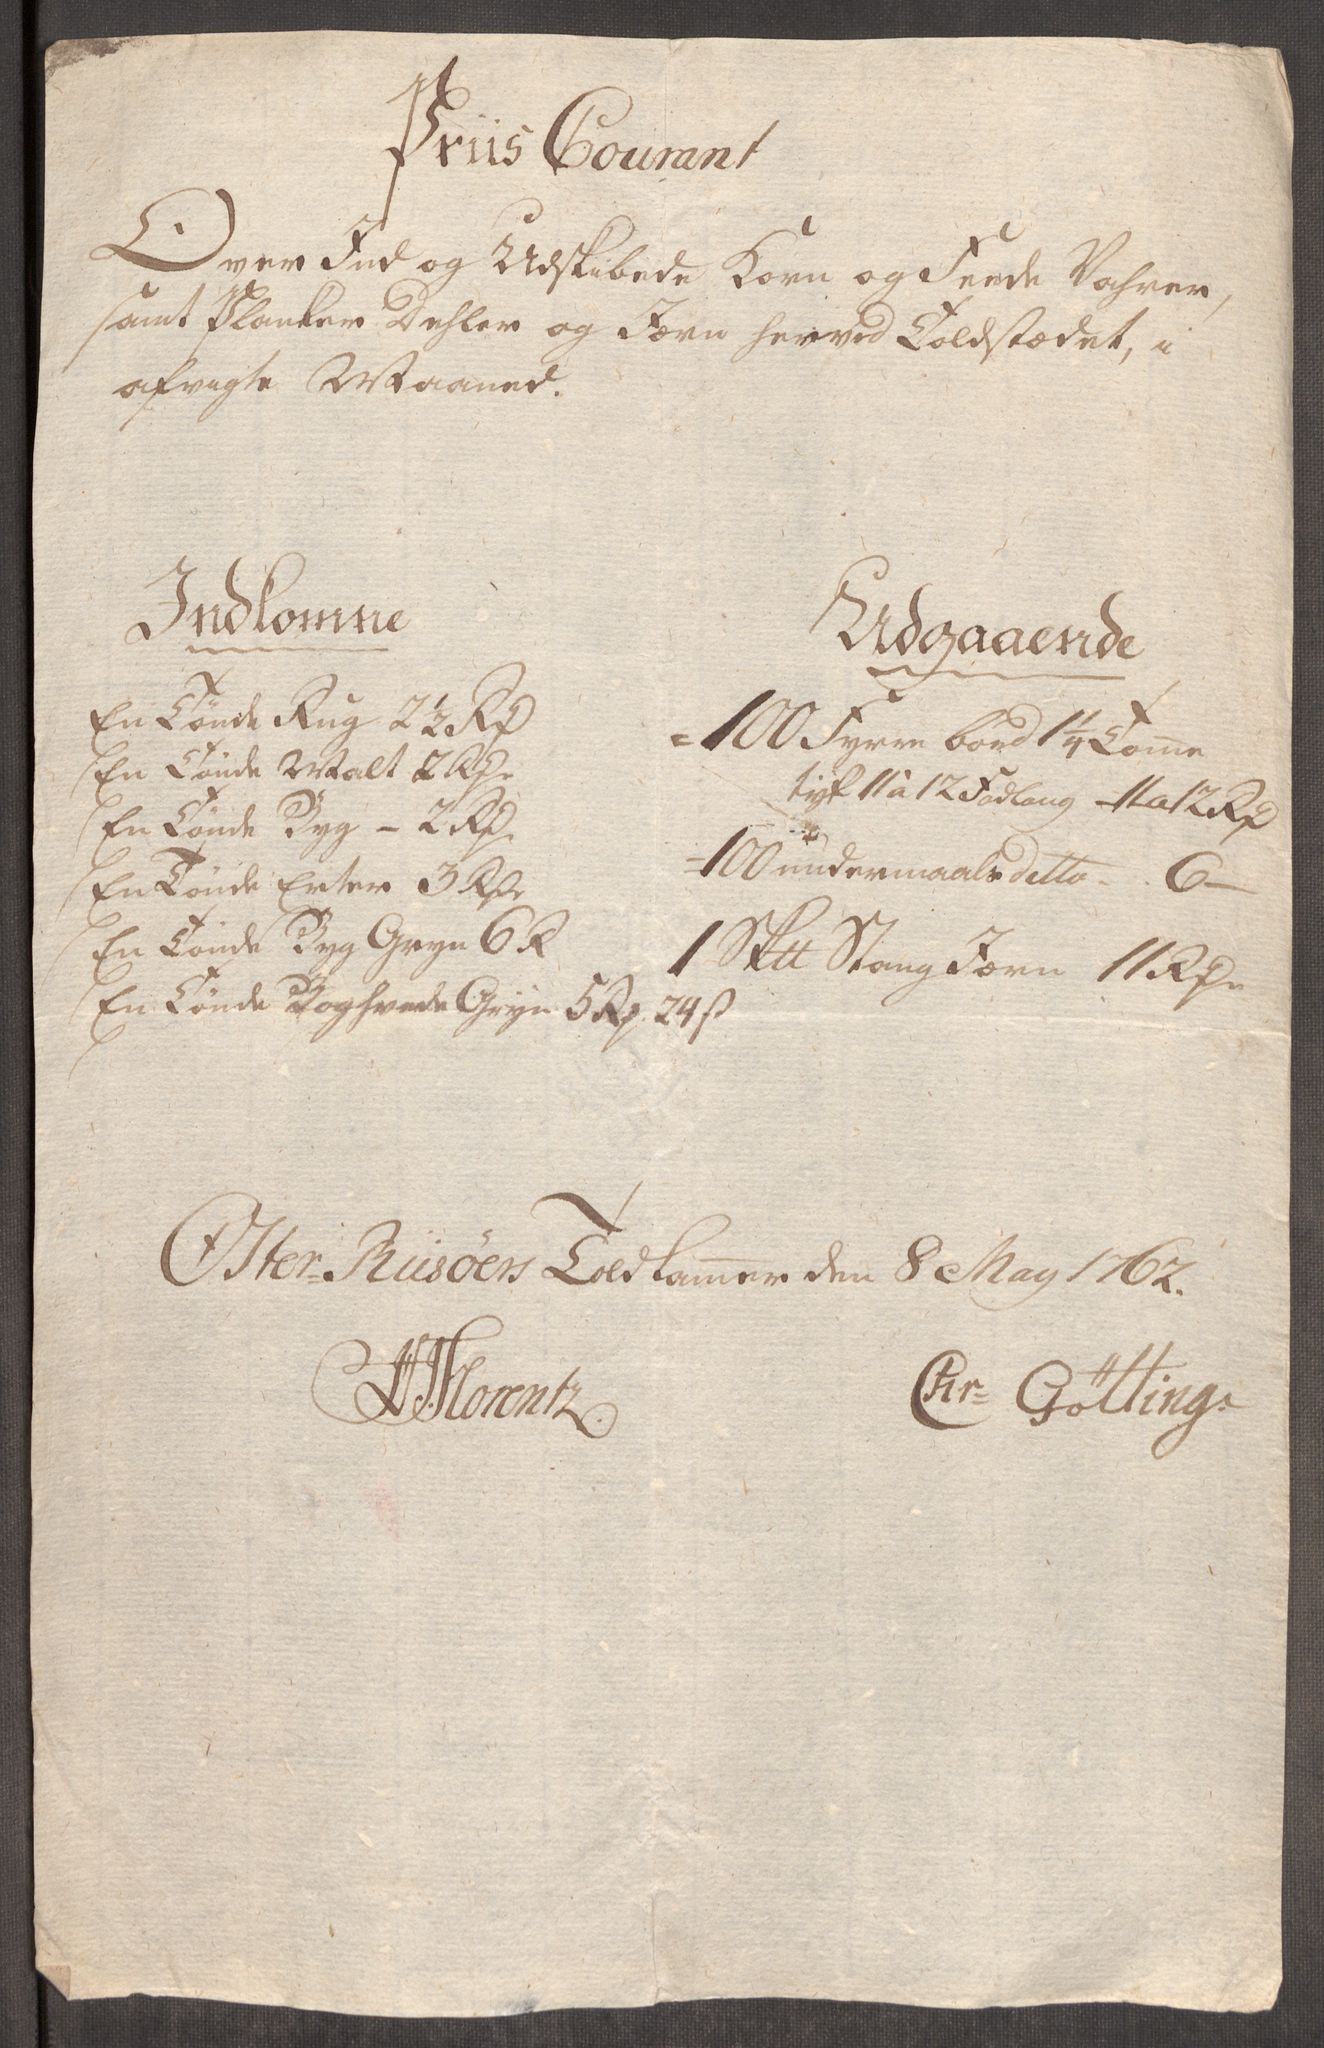 Priis Courant
Over Ind og Udskibede Korn og Feede Vahrer,
samt Planker Dehler og Jærn herved Toldstædet, i
afvigte Maaned.
Indkomne
En Tönde Rug 2 1/2 Rd
En Tönde Malt 2 Rd.
En Tönde Byg - 2 Rd.
En Tönde Erter 3 Rd.
En Tönde Byg Gryn 6 R
En Tönde Boghvede Gryn 5 Rd. 24 ß
Udgaaende
= 100 Fyrre bord 1 1/4 Tomme
tyk 11 à 12 Fod lang - 11 a 12 Rd
= 100 undermaals detto - . 6 —
1 Sk℔ Stang Jærn 11 Rd.
Oster-Riisöers Toldkammer den 8 May 1762.
Florentz.
Chr= Götting.